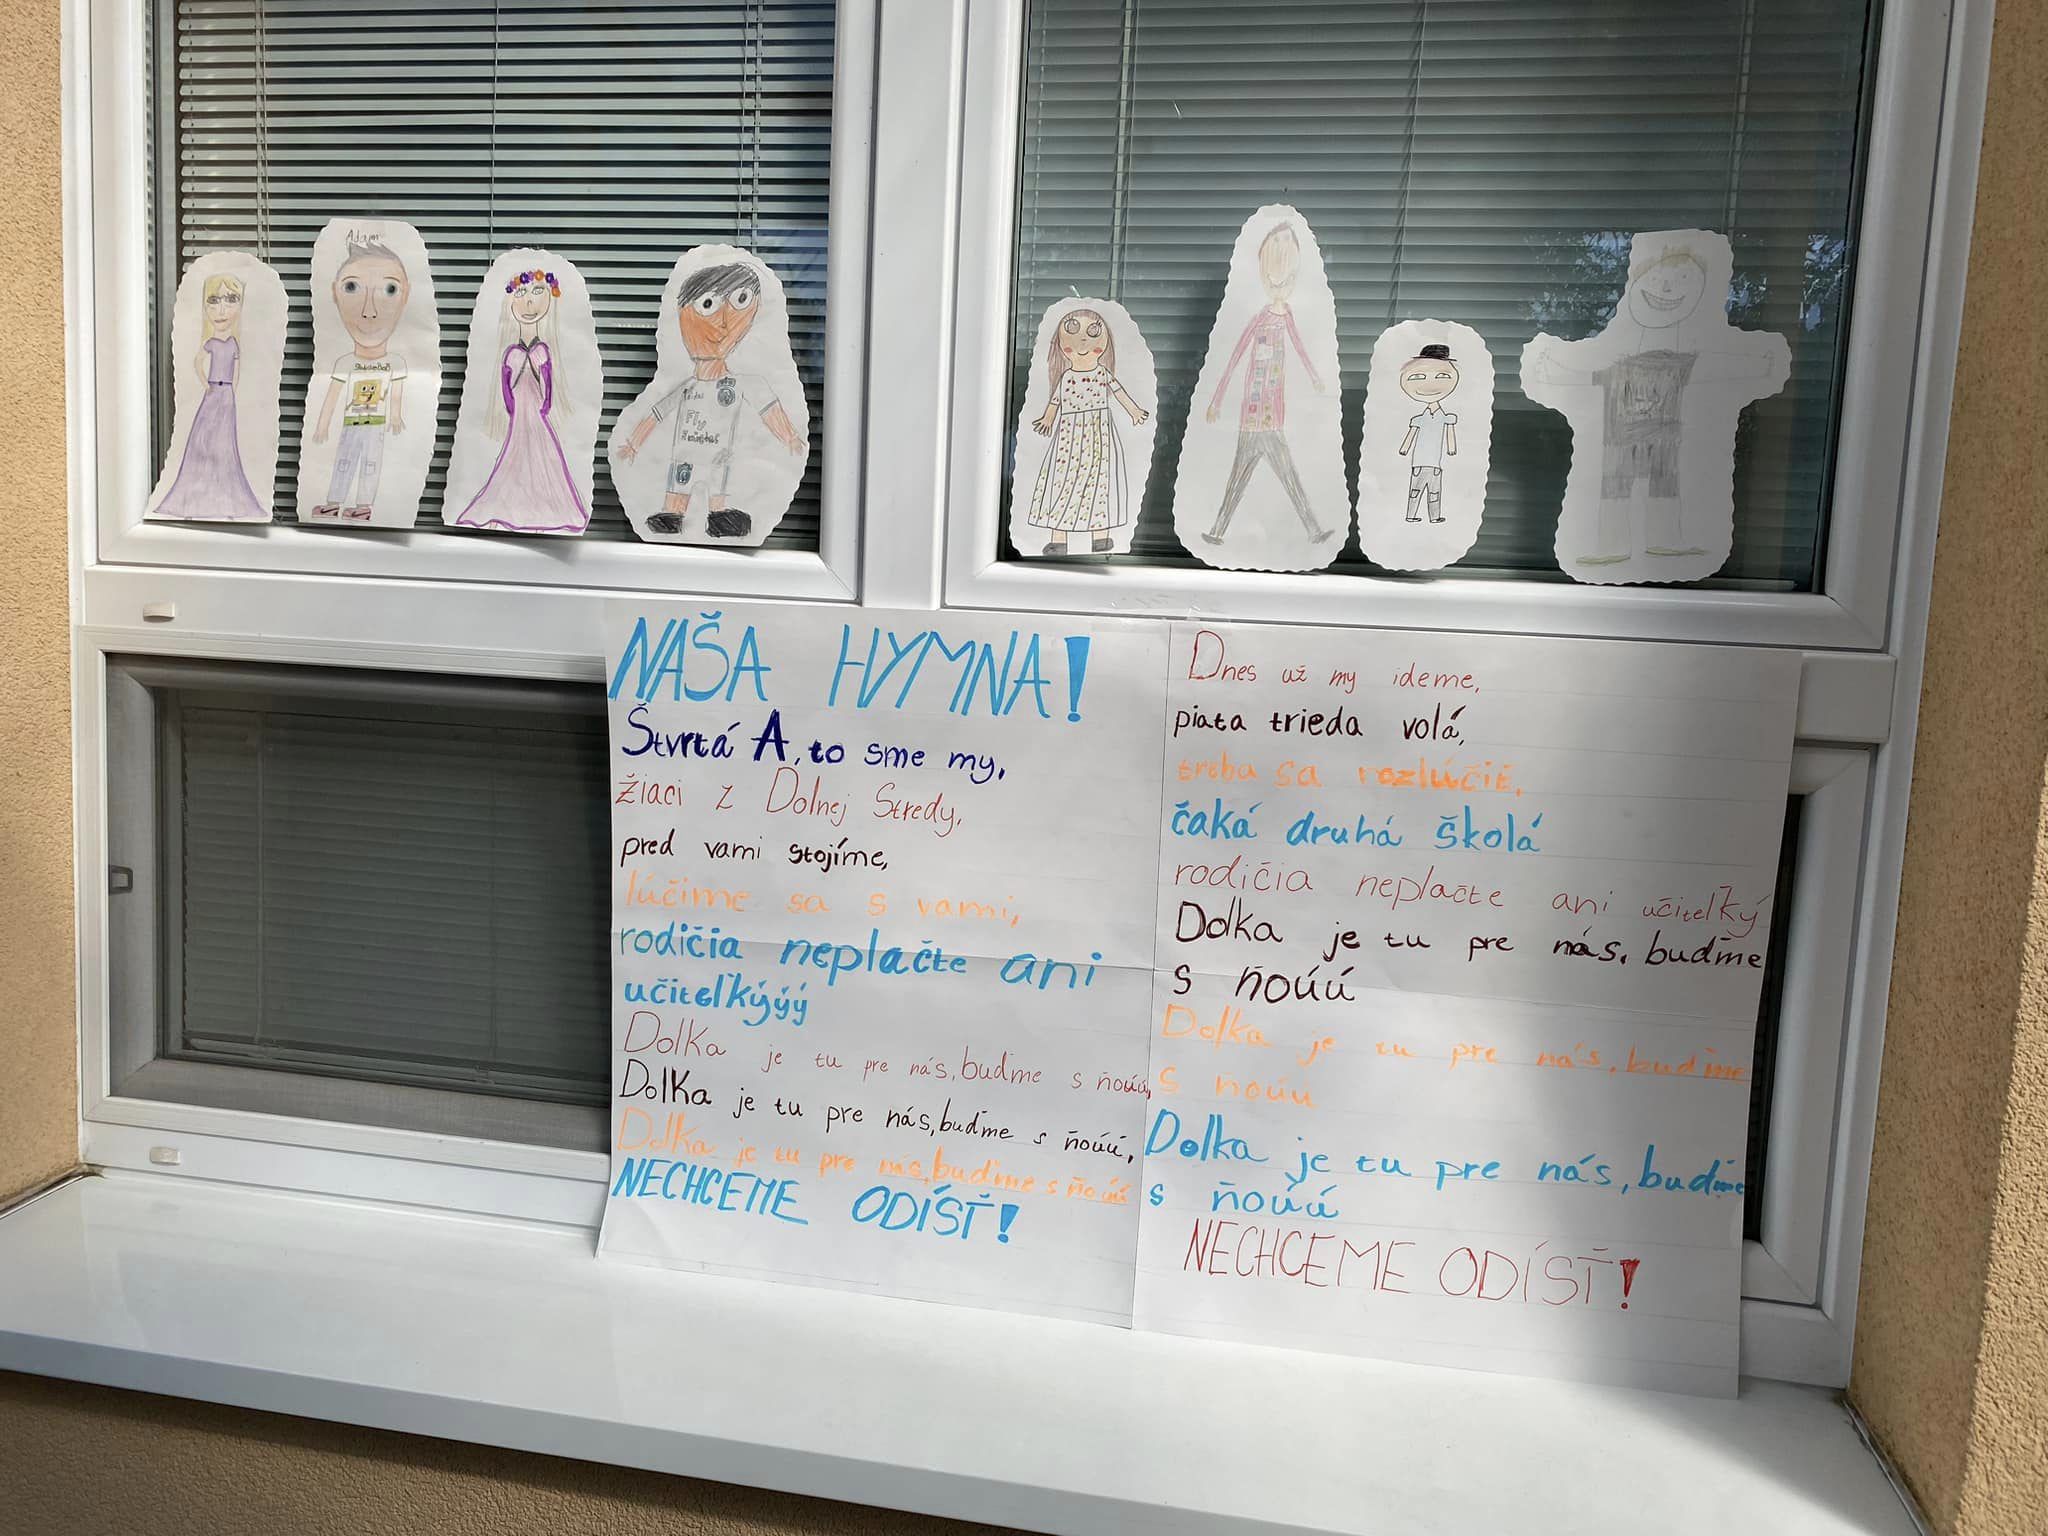 Adam
SpongeBoB
Fly
Emirates
NAŠA HYMNA!
Štvrtá A, to sme my,
žiaci z Dolnej Stredy,
pred vami stojíme,
lúčime sa s vami,
rodičia neplačte ani
učiteľkýýý
Dolka je tu pre nás, buďme s ňoúú,
Dolka je tu pre nás, buďme s ňoúú,
Dolka je tu pre nás, buďme s ňoúú
NECHCEME ODÍSŤ!
Dnes už my ideme,
piata trieda volá,
treba sa rozlúčiť,
čaká druhá školá
rodičia neplačte ani učiteľký
Dolka je tu pre nás, buďme
s ňoúú
Dolka je tu pre nás, buďme
s ňoúú
Dolka je tu pre nás, buďme
s ňoúú
NECHCEME ODÍSŤ!